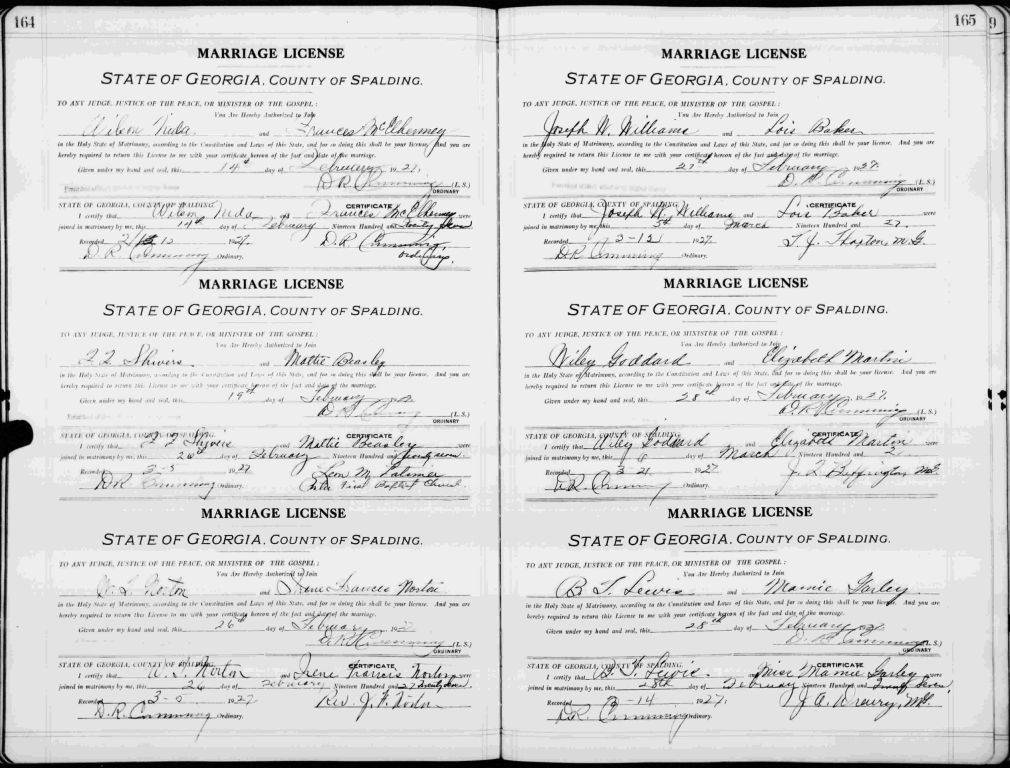 164
MARRIAGE LICENSE
STATE OF GEORGIA, COUNTY OF SPALDING.
TO ANY JUDGE, JUSTICE OF THE PEACE, OR MINISTER OF THE GOSPEL:
You Are Hereby Authorized to Join
Wilson and Frances McElhenney
in the Holy State of Matrimony, according to the Constitution and Laws of this State, and for so doing this shall be your license. And you are
hereby required to return this License to me with your certificate hereon of the fact and date of the marriage.
Given under my hand and seal, this 14th day of February 1927.
D. R. Cumming (L. S.)
ORDINARY
CERTIFICATE
STATE OF GEORGIA, COUNTY OF SPALDING.
I certify that and Frances McElhenney were
joined in matrimony by me, this 14th day of February Nineteen Hundred and twenty seven
Recorded 1927. D. R. Cumming,
D. R. Cumming Ordinary. Ordinary.
MARRIAGE LICENSE
STATE OF GEORGIA, COUNTY OF SPALDING.
TO ANY JUDGE, JUSTICE OF THE PEACE, OR MINISTER OF THE GOSPEL:
You Are Hereby Authorized to Join
Shivers and Mattie Beasley
in the Holy State of Matrimony, according to the Constitution and Laws of this State, and for so doing this shall be your license. And you are
hereby required to return this License to me with your certificate hereon of the fact and date of the marriage.
Given under my hand and seal, this 19th day of February
D. R. Cumming (L. S.)
ORDINARY
CERTIFICATE
STATE OF GEORGIA, COUNTY OF SPALDING.
I certify that and Mattie Beasley were
joined in matrimony by me, this 20th day of February Nineteen Hundred and twenty seven
Recorded 3-5 1927 Leon M. Latimer
D. R. Cumming Ordinary. First Baptist Church.
MARRIAGE LICENSE
STATE OF GEORGIA, COUNTY OF SPALDING.
TO ANY JUDGE, JUSTICE OF THE PEACE, OR MINISTER OF THE GOSPEL:
You Are Hereby Authorized to Join
Norton and Irene Frances Norton
in the Holy State of Matrimony, according to the Constitution and Laws of this State, and for so doing this shall be your license. And you are
hereby required to return this License to me with your certificate hereon of the fact and date of the marriage.
Given under my hand and seal, this 26th day of February 192
D. R. Cumming (L. S.)
ORDINARY
CERTIFICATE
STATE OF GEORGIA, COUNTY OF SPALDING.
I certify that Norton and Irene Francis Norton were
joined in matrimony by me, this 26 day of February Nineteen Hundred and 27 twenty seven
Recorded 3-5 1927 Rev. J. F.
D. R. Cumming Ordinary.
165
9
MARRIAGE LICENSE
STATE OF GEORGIA, COUNTY OF SPALDING.
TO ANY JUDGE, JUSTICE OF THE PEACE, OR MINISTER OF THE GOSPEL:
You Are Hereby Authorized to Join
Joseph H. Williams and Lois Baker
in the Holy State of Matrimony, according to the Constitution and Laws of this State, and for so doing this shall be your license. And you are
hereby required to return this License to me with your certificate hereon of the fact and date of the marriage.
Given under my hand and seal, this 27th day of February 1927.
D. R. Cumming (L. S.)
ORDINARY
CERTIFICATE
STATE OF GEORGIA, COUNTY OF SPALDING.
I certify that Joseph H. Williams and Lois Baker were
joined in matrimony by me, this 5th day of March Nineteen Hundred and 27.
Recorded 3-12 1927. M. G.
D. R. Cumming Ordinary.
MARRIAGE LICENSE
STATE OF GEORGIA, COUNTY OF SPALDING.
TO ANY JUDGE, JUSTICE OF THE PEACE, OR MINISTER OF THE GOSPEL:
You Are Hereby Authorized to Join
Wiley Goddard and Elizabeth Martin
in the Holy State of Matrimony, according to the Constitution and Laws of this State, and for so doing this shall be your license. And you are
hereby required to return this License to me with your certificate hereon of the fact and date of the marriage.
Given under my hand and seal, this 28th day of February 1927.
D. R. Cumming (L. S.)
ORDINARY
CERTIFICATE
STATE OF GEORGIA, COUNTY OF SPALDING.
I certify that Wiley Goddard and Elizabeth Martin were
joined in matrimony by me, this 8 day of March Nineteen Hundred and
Recorded 3-21 1927 Buffington, M.G.
D. R. Cumming Ordinary.
MARRIAGE LICENSE
STATE OF GEORGIA, COUNTY OF SPALDING.
TO ANY JUDGE, JUSTICE OF THE PEACE, OR MINISTER OF THE GOSPEL:
You Are Hereby Authorized to Join
B. T. Lewis and Mamie Farley
in the Holy State of Matrimony, according to the Constitution and Laws of this State, and for so doing this shall be your license. And you are
hereby required to return this License to me with your certificate hereon of the fact and date of the marriage.
Given under my hand and seal, this 28th day of February
D. R. Cumming (L. S.)
ORDINARY
CERTIFICATE
STATE OF GEORGIA, COUNTY OF SPALDING.
I certify that B. T. Lewis and Miss Mamie Farley were
joined in matrimony by me, this 28th day of February Nineteen Hundred and Twenty Seven,
Recorded 3-14 1927. J. A. Drewry, M.G.
D. R. Cumming Ordinary.